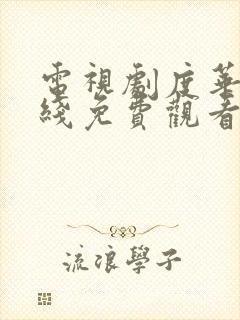 電視劇度華
綫免費觀看
流浪學子